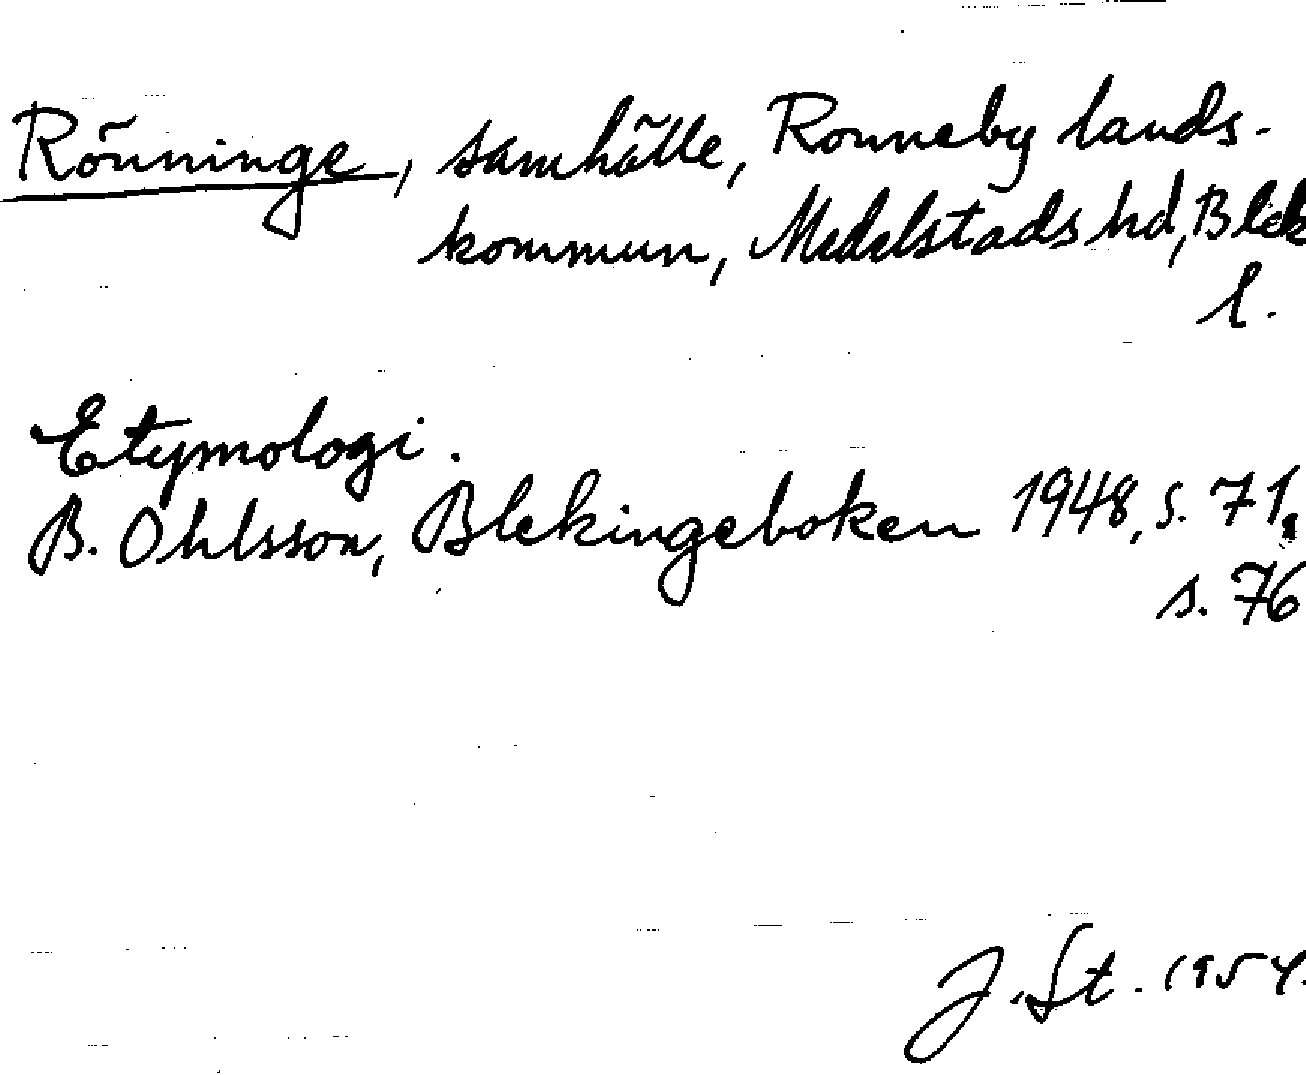 Rönninge, samhälle, Ronneby lands-
kommun, Medelstads hd, Blek
l.
Etymologi.
B. Ohlsson, Blekingeboken 1948, s. 71,
s. 76
J. St. 1954.